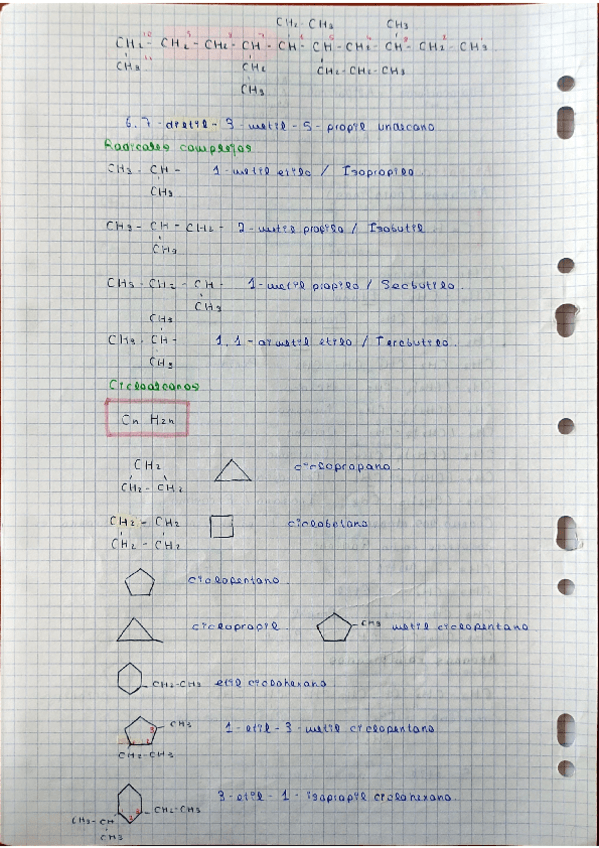 CH2 - CH3 CH3
10 9 8 7 6 5 4 3 2 1
CH2 - CH2 - CH2 - CH - CH - CH - CH2 - CH - CH2 - CH3
CH3 11 CH2 CH2 - CH2 - CH3
CH3
6,7-dietil-3-metil-5-propil undecano
Radicales complejos
CH3 - CH - 1-metil etilo / Isopropilo
CH3
CH3 - CH - CH2 - 2-metil propilo / Isobutil
CH3
CH3 - CH2 - CH - 1-metil propilo / Secbutilo.
CH3
CH3
CH3 - CH - 1,1-dimetil etilo / Tercbutilo.
CH3
Cicloalcanos
Cn H2n
CH2 ciclopropano
CH2 - CH2
CH2 - CH2 ciclobutano
CH2 - CH2
ciclopentano.
ciclopropil. CH3 metil ciclopentano
CH2-CH3 etil ciclohexano
CH3 1-etil-3-metil ciclopentano
CH2-CH3
3-etil-1-isopropil ciclohexano.
CH2-CH3
CH3-CH
CH3